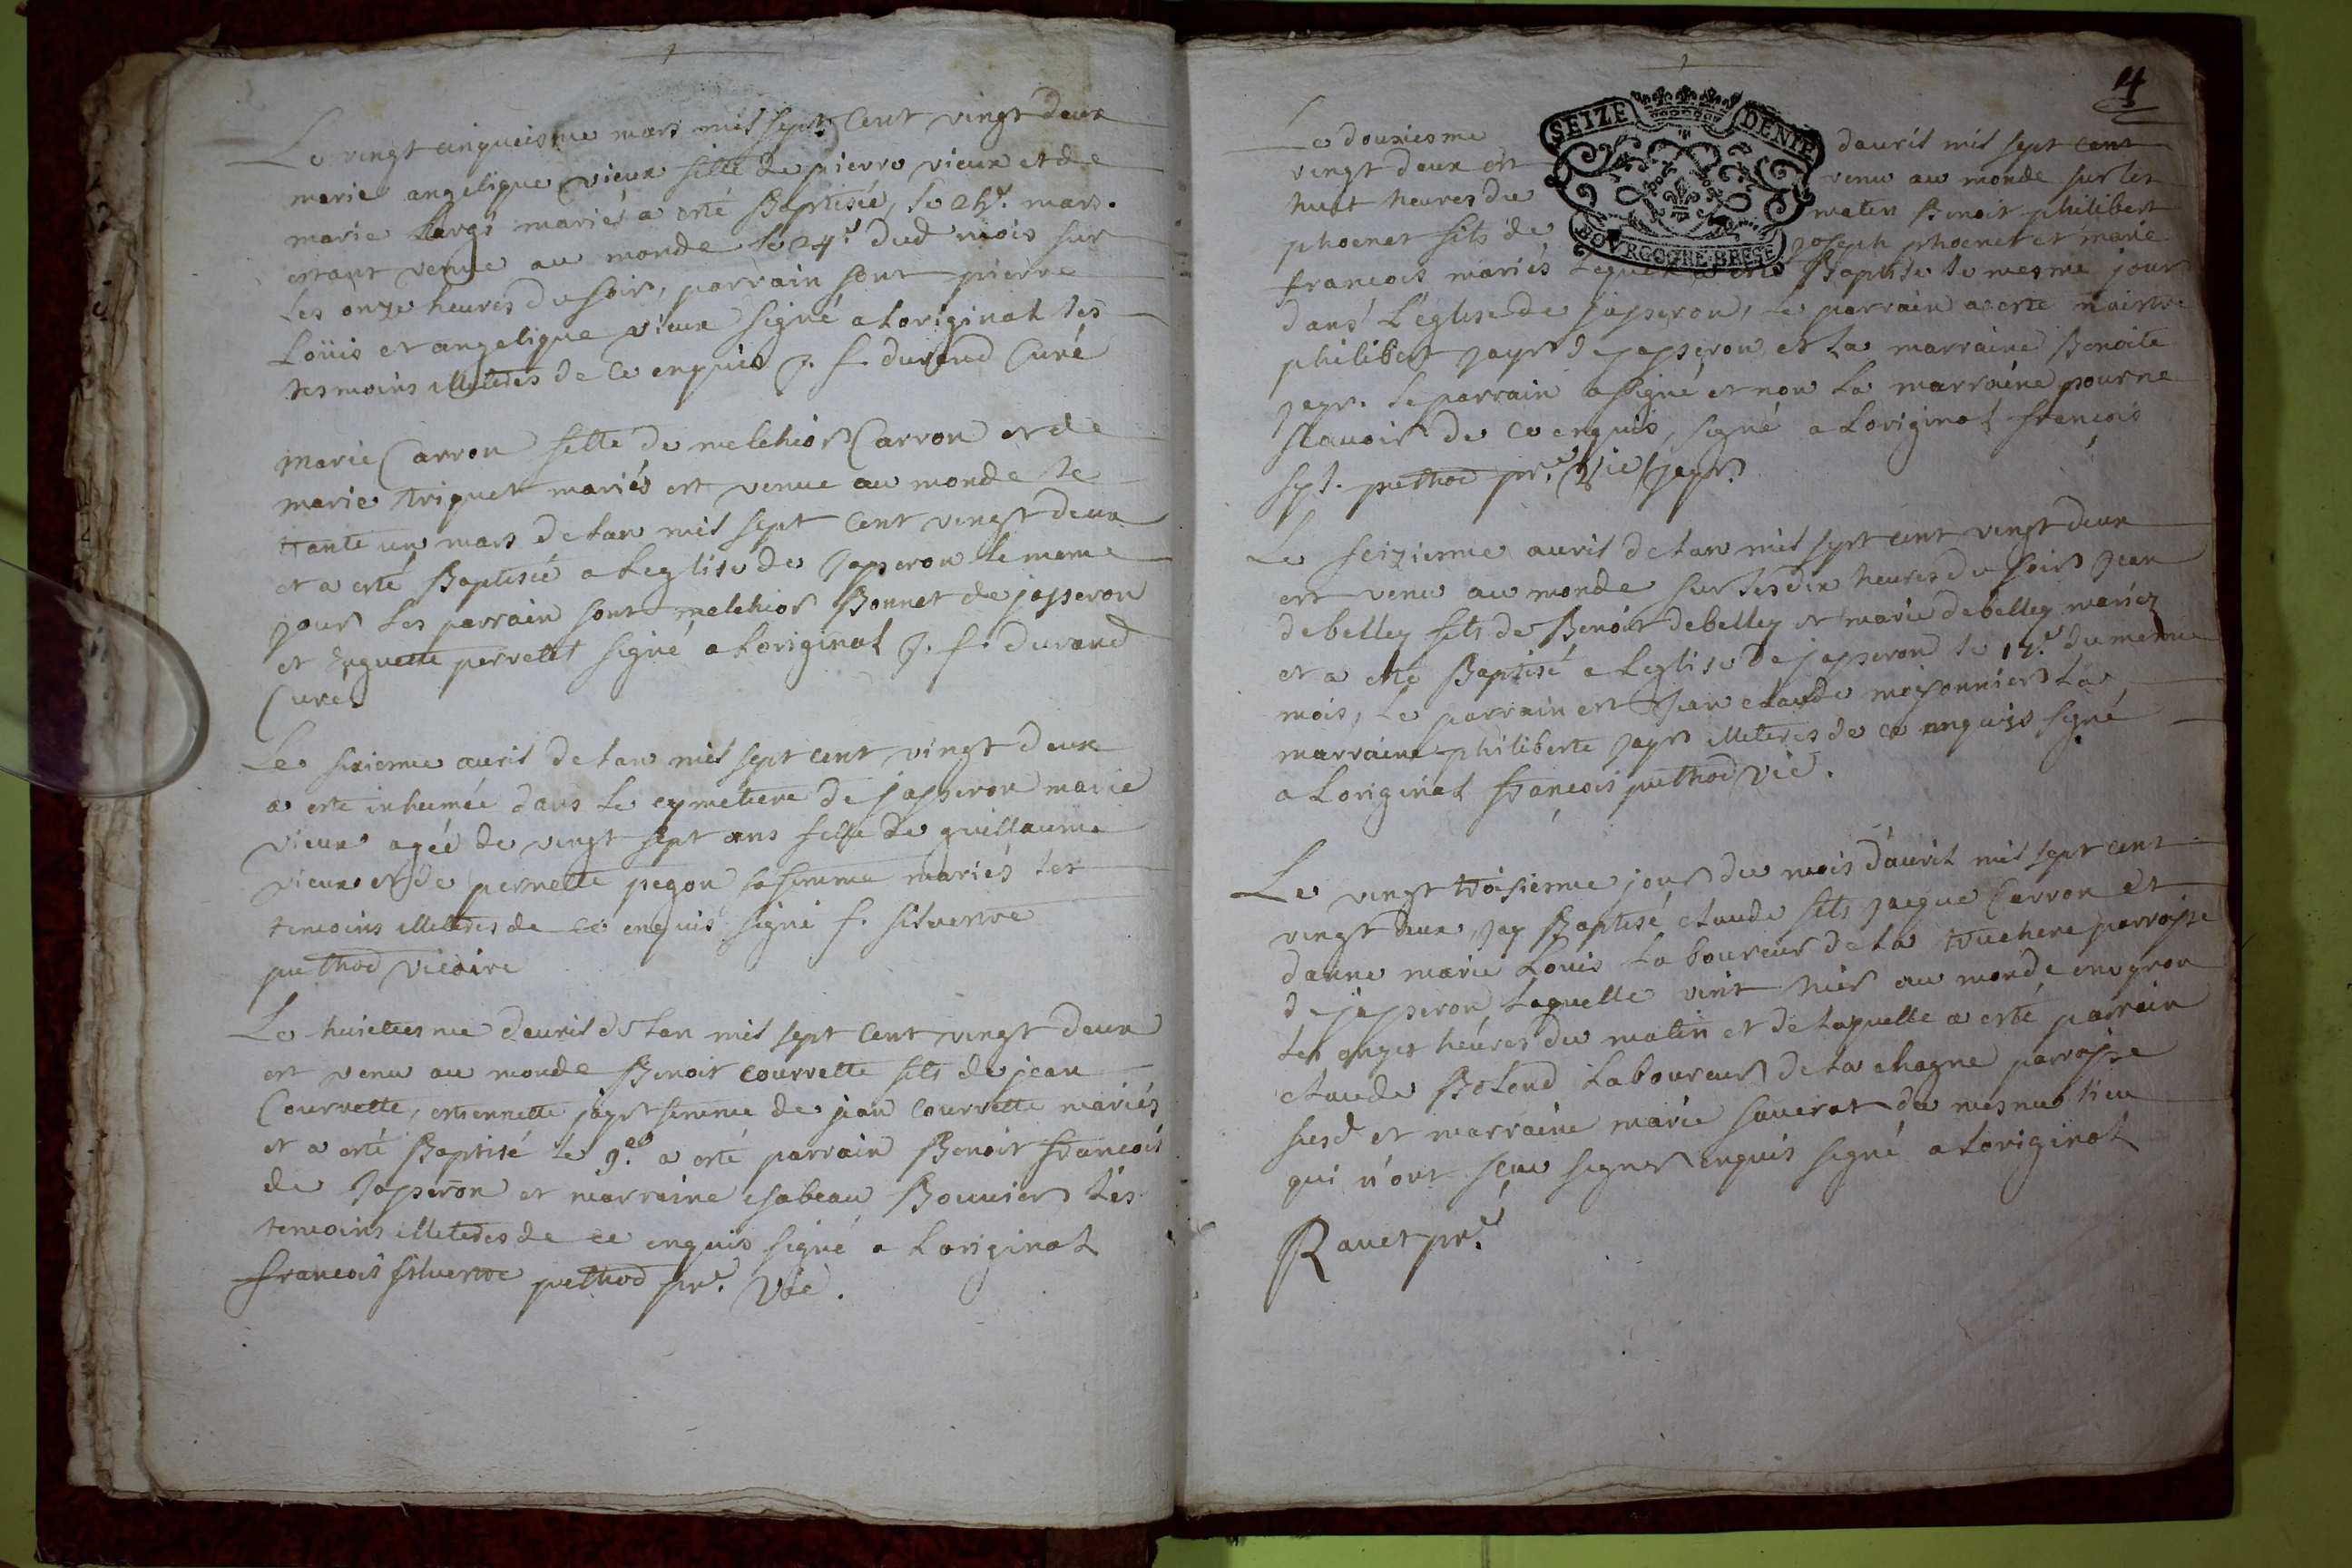 Le vingt cinquiesme mars mil sept cent vingt deux
marie angelique vieux fille de pierre vieux et de
marie Largé mariés a esté Baptisée, le 25e. mars.
estant venue au monde le 24e. dud mois sur
les onze heures du soir, parrain sont pierre
Loüis et angelique vieux signé a Loriginal les
tesmoins illeteres de ce enquis J. f. durand Curé
marie Carron fille de melchior Carron et de
marie triquet mariés est venue au monde le
trante un mars de lan mil sept cent vingt deux
et a esté Baptisée a Leglise de Jasseron le meme
jour les parrain sont melchior Bonnet de jasseron
et huguette perrelet signé a Loriginal J. f. durand
Curé
Le sixieme auril de lan mil sept cent vingt deux
a esté inhumée dans le cymetiere de jasseron marie
vieux agée de vingt sept ans fille de guillaume
vieux et de pernette pegon sa femme mariés les
temoins illeteres de ce enquis signé f. siluestre
puthod vicaire
Le huictiesme dauril de lan mil sept cent vingt deux
est venu au monde Benoit courvette fils de jean
Courvette, estiennette jayr femme de jean courvette mariés
et a esté Baptisé le 9e. a esté parrain Benoit francois
de Jasseron et marraine esabeau Bouuier les
temoins illeteres de ce enquis signé a Loriginal
francois siluestre puthod pre. vic.
4
SEIZE DENIE
BOVRGOGNE·BRESE
Le douxiesme dauril mil sept cent
vingt deux est venu au monde sur les
huit heures du matin Benoit philibert
phoenet fils de joseph phoenet et marie
francois mariés lequel a esté Baptisé le mesme jour
dans Leglise de jasseron, le parrain a esté maistre
philibert jayr de jasseron et la marraine Benoite
jayr. le parrain a signé et non la marraine pour ne
scauoir de ce enquis, signé a Loriginal francois
puthod pre. vic jayr
Le seizieme auril de lan mil sept cent vingt deux
est venu au monde sur les dix heures du soir jean
debelley fils de Benoit debelley et marie debelley mariez
et a esté Baptisé a Leglise de jasseron le 17e. du meme
mois, le parrain est jean claude moyonnier la
marraine philiberte jayr illeteres de ce enquis signé
a Loriginal francois puthod vic.
Le vingt troisieme jour du mois d'auril mil sept cent
vingt deux, jay Baptisé claude fils jacque Carron et
danne marie Louis laboureur de la truchere parroisse
de jasseron, laquelle vint hier au monde enuyron
les onzes heures du matin et de laquelle a esté parrain
claude Bolend laboureur de la chagne parroisse
susd et marraine marie sauerat du mesme lieu
qui n'ont sceu signer enquis signé a Loriginal
Rauet pre.